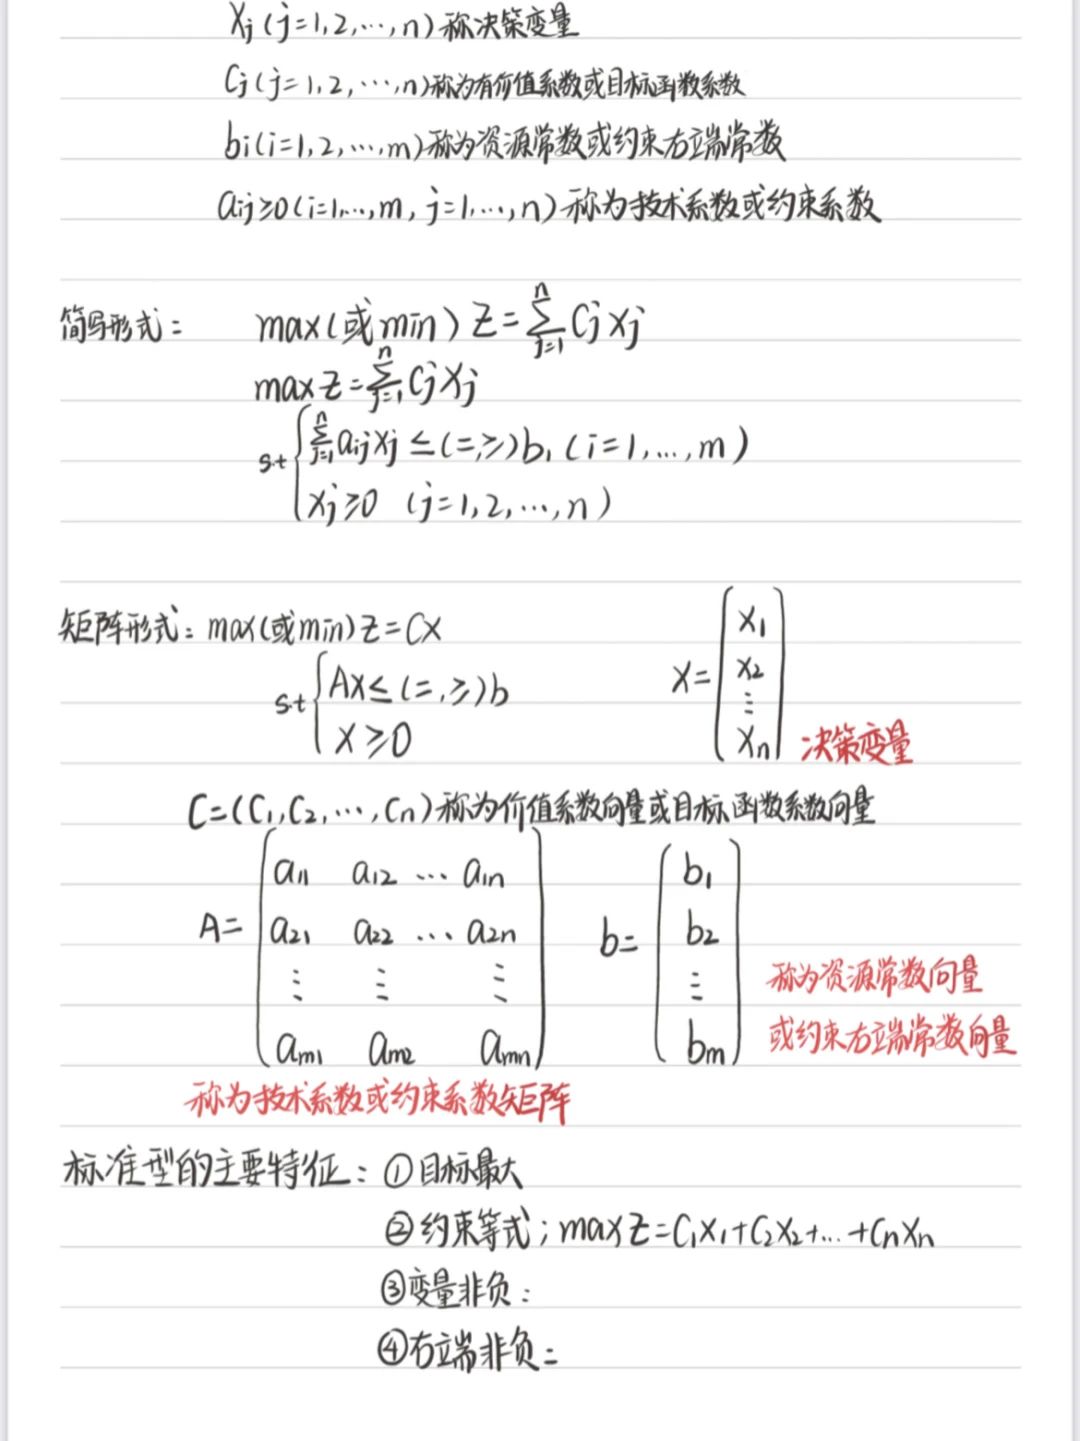 xj (j=1,2,…,n) 称决策变量
Cj (j=1,2,…,n) 称为有价值系数或目标函数系数
bi (i=1,2,…,m) 称为资源常数或约束右端常数
aij≥0 (i=1,…,m, j=1,…,n) 称为技术系数或约束系数
简写形式: max(或min) Z=∑_{j=1}^{n} Cj xj
max Z=∑_{j=1}^{n} Cj Xj
s.t { ∑_{j=1}^{n} aij xj ≤(=,≥) b₁ (i=1,…,m)
xj≥0 (j=1,2,…,n)
矩阵形式: max(或min) Z=CX
s.t { AX≤(=,≥)b
X≥0
X= ( x₁ x₂ ⋮ xn ) 决策变量
C=(C₁,C₂,…,Cn) 称为价值系数向量或目标函数系数向量
A= ( a₁₁ a₁₂ … a₁n
a₂₁ a₂₂ … a₂n
⋮ ⋮ ⋮
am₁ am₂ amn )
b= ( b₁ b₂ ⋮ bm )
称为资源常数向量
或约束右端常数向量
称为技术系数或约束系数矩阵
标准型的主要特征: ①目标最大
②约束等式; max Z=C₁X₁+C₂X₂+…+CnXn
③变量非负:
④右端非负: